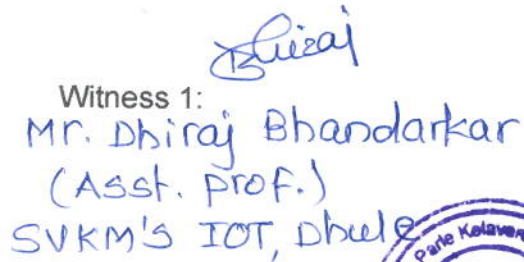 Dhiraj
Witness 1:
Mr. Dhiraj Bhandarkar
(Asst. prof.)
SVKM'S IOT, Dhule
Parle Kelavani